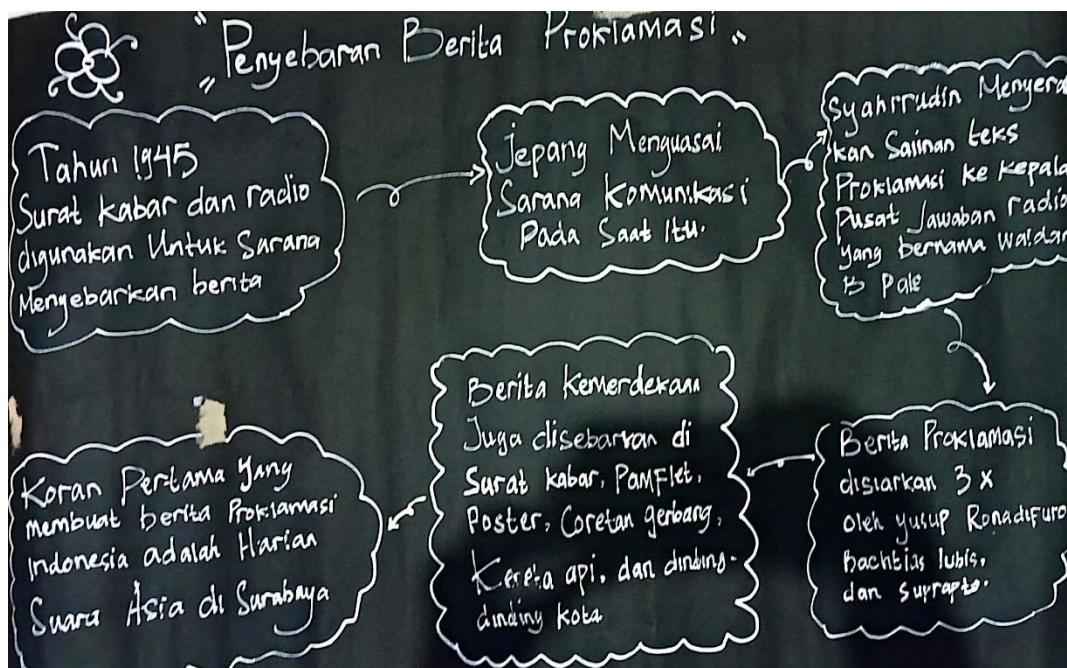 "Penyebaran Berita Proklamasi"
Tahun 1945
Surat kabar dan radio
digunakan Untuk Sarana
Menyebarkan berita
Jepang Menguasai
Sarana Komunikasi
Pada Saat Itu.
Syahrrudin Menyera
kan Sainan teks
Proklamasi ke Kepala
Pusat Jawaban radio
yang bernama Waidan
B Pale
Berita Proklamasi
disiarkan 3 x
oleh yusup Ronadifuro
Bachtias lubis,
dan suprapto.
Berita Kemerdekaan
Juga disebarkan di
Surat kabar, Pamflet,
Poster, Coretan gerbang,
Kereta api, dan dinding-
dinding kota
Koran Pertama Yang
membuat berita Proklamasi
Indonesia adalah Harian
Suara Asia di Surabaya